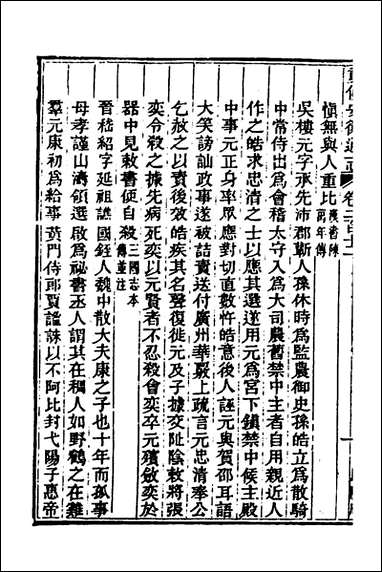 愼無與人重比漢書陳萬年傳
吳樓元字承先沛郡蘄人孫休時爲監農御史孫皓立爲散騎
中常侍出爲會稽太守入爲大司農舊禁中主者自用親近人
作之皓求忠淸之士以應其選遂用元爲宮下鎭禁中候主殿
中事元正身率眾應對切直數忤皓意後人誣元與賀邵耳語
大笑謗訕政事遂被詰責送付廣州華覈上疏言元忠淸奉公
乞赦之以責後效皓疾其名聲復徙元及子據交阯陰敕將張
奕令殺之據先病死奕以元賢者不忍殺會奕卒元殯斂奕於
器中見敕書便自殺三國志本傳並注
晉嵇紹字延祖譙國銍人魏中散大夫康之子也十年而孤事
母孝謹山濤領選啟爲祕書丞人謂其在稠人如野鶴之在雞
羣元康初爲給事黃門侍郎賈謐誅以不阿比封弋陽子惠帝